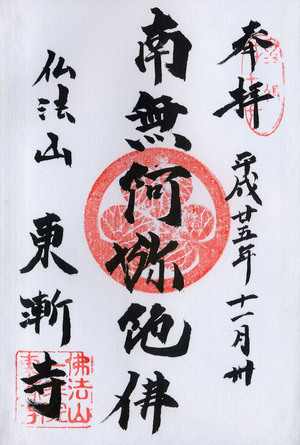 奉拝
平成廿五年十一月卅
南無阿弥陀佛
仏法山
東漸寺
佛法山